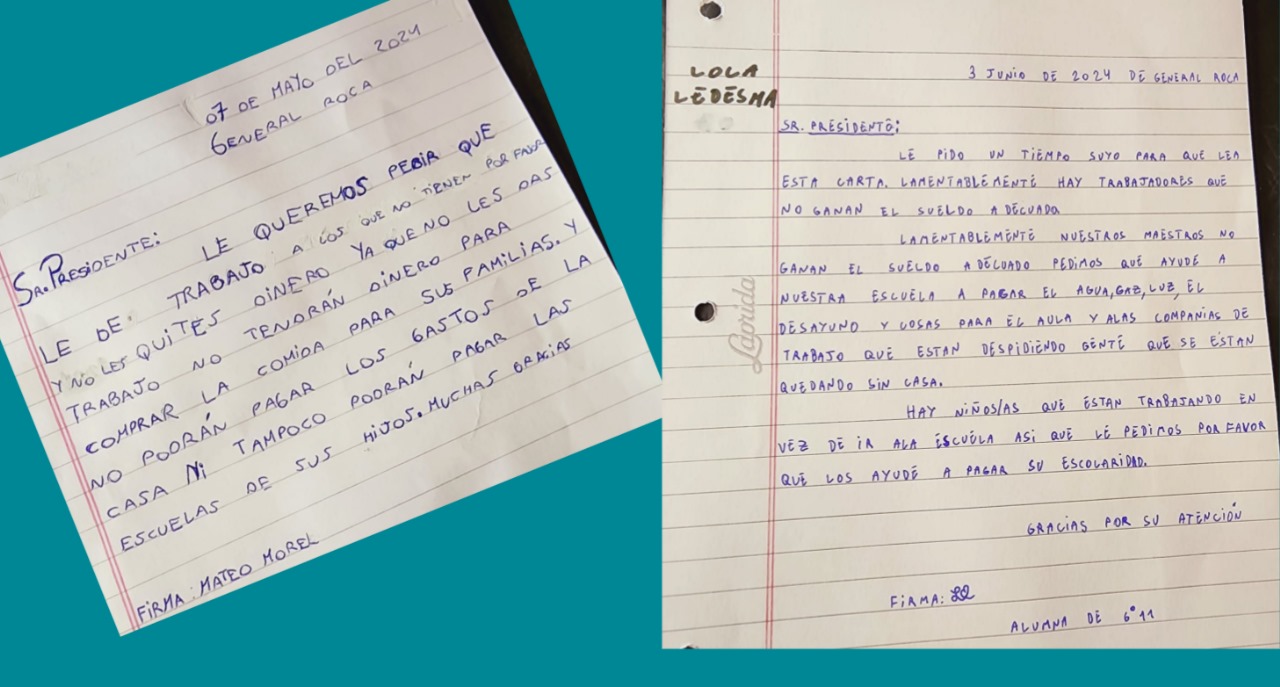 07 DE MAYO DEL 2024
GENERAL ROCA
SR. PRESIDENTE:
LE QUEREMOS PEDIR QUE
LE DE TRABAJO A LOS QUE NO TIENEN POR FAVOR
Y NO LES QUITES DINERO YA QUE NO LES DAS
TRABAJO NO TENDRÁN DINERO PARA
COMPRAR LA COMIDA PARA SUS FAMILIAS. Y
NO PODRÁN PAGAR LOS GASTOS DE LA
CASA NI TAMPOCO PODRÁN PAGAR LAS
ESCUELAS DE SUS HIJOS. MUCHAS GRACIAS
FIRMA: MATEO MOREL
LOLA
LEDESMA
3 JUNIO DE 2024 DE GENERAL ROCA
SR. PRESIDENTE:
LE PIDO UN TIEMPO SUYO PARA QUE LEA
ESTA CARTA. LAMENTABLEMENTE HAY TRABAJADORES QUE
NO GANAN EL SUELDO ADECUADA
LAMENTABLEMENTE NUESTROS MAESTROS NO
GANAN EL SUELDO ADECUADO PEDIMOS QUE AYUDE A
NUESTRA ESCUELA A PAGAR EL AGUA, GAZ, LUZ, EL
DESAYUNO Y COSAS PARA EL AULA Y ALAS COMPANIAS DE
TRABAJO QUE ESTAN DESPIDIENDO GENTE QUE SE ESTAN
QUEDANDO SIN CASA.
HAY NIÑOS/AS QUE ESTAN TRABAJANDO EN
VEZ DE IR ALA ESCUELA ASI QUE LE PEDIMOS POR FAVOR
QUE LOS AYUDE A PAGAR SU ESCOLARIDAD.
GRACIAS POR SU ATENCIÓN
FIRMA:
ALUMNA DE 6° 11
Laprida